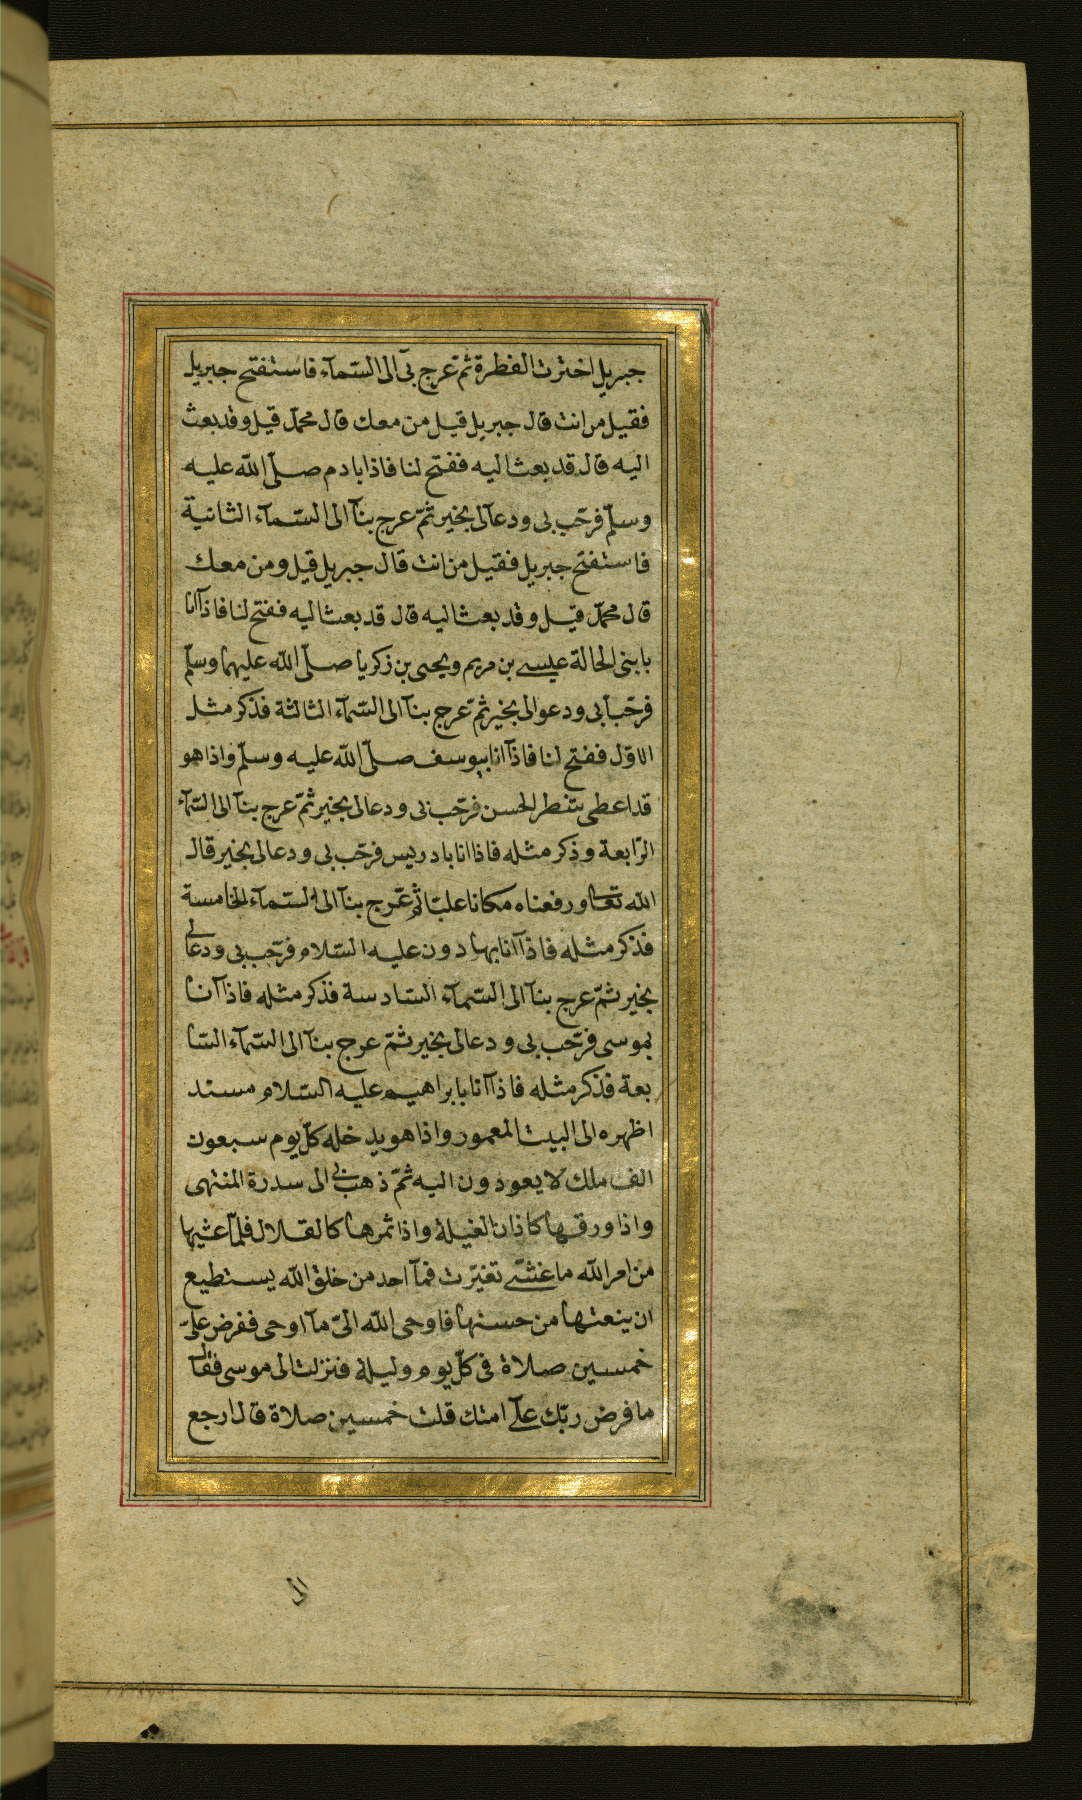 جبريل اخترت الفطرة ثمّ عرج بى الى السّمآء فاستفتح جبريل
فقيل من انت قال جبريل قيل من معك قال محمّد قيل وقد بعث
اليه قال قد بعث اليه ففتح لنا فاذا بادم صلّى اللّه عليه
وسلّم فرحّب بى ودعآلى بخير ثمّ عرج بنآ الى السّمآء الثانية
فاستفتح جبريل فقيل من انت قال جبريل قيل ومن معك
قال محمّد قيل وقد بعث اليه قال قد بعث اليه ففتح لنا فاذآ انا
بابنى الخالة عيسى بن مريم ويحيى بن زكريا صلّى اللّه عليهما وسلّم
فرحّبا بى ودعوالى بخير ثمّ عرج بنآ الى السّمآء الثالثة فذكر مثل
الاوّل ففتح لنا فاذآ انا بيوسف صلّى اللّه عليه وسلّم واذا هو
قد اعطى شطر الحسن فرحّب بى ودعالى بخير ثمّ عرج بنآ الى السّمآء
الرّابعة وذكر مثله فاذا انا بادريس فرحّب بى ودعالى بخير قال
اللّه تعالى ورفعناه مكانا عليّا ثمّ عرج بنآ الى السّمآء الخامسة
فذكر مثله فاذآ انا بهادون عليه السّلام فرحّب بى ودعالى
بخير ثمّ عرج بنآ الى السّمآء السّادسة فذكر مثله فاذآ انا
بموسى فرحّب بى ودعالى بخير ثمّ عرج بنآ الى السّمآء السّا
بعة فذكر مثله فاذآ انا بابراهيم عليه السّلام مسند
اظهره الى البيت المعمور واذا هو يدخله كلّ يوم سبعون
الف ملك لا يعودون اليه ثمّ ذهب بى الى سدرة المنتهى
واذا ورقها كاذان الفيلة واذا ثمرها كالقلال فلمّا غشيها
من امر اللّه ما غشّى تغيّرت فمآ احد من خلق اللّه يستطيع
ان ينعتها من حسنها فاوحى اللّه الىّ مآ اوحى ففرض علىّ
خمسين صلاة فى كلّ يوم وليلة فنزلت الى موسى فقال
ما فرض ربّك على امتك قلت خمسين صلاة قال ارجع
الى